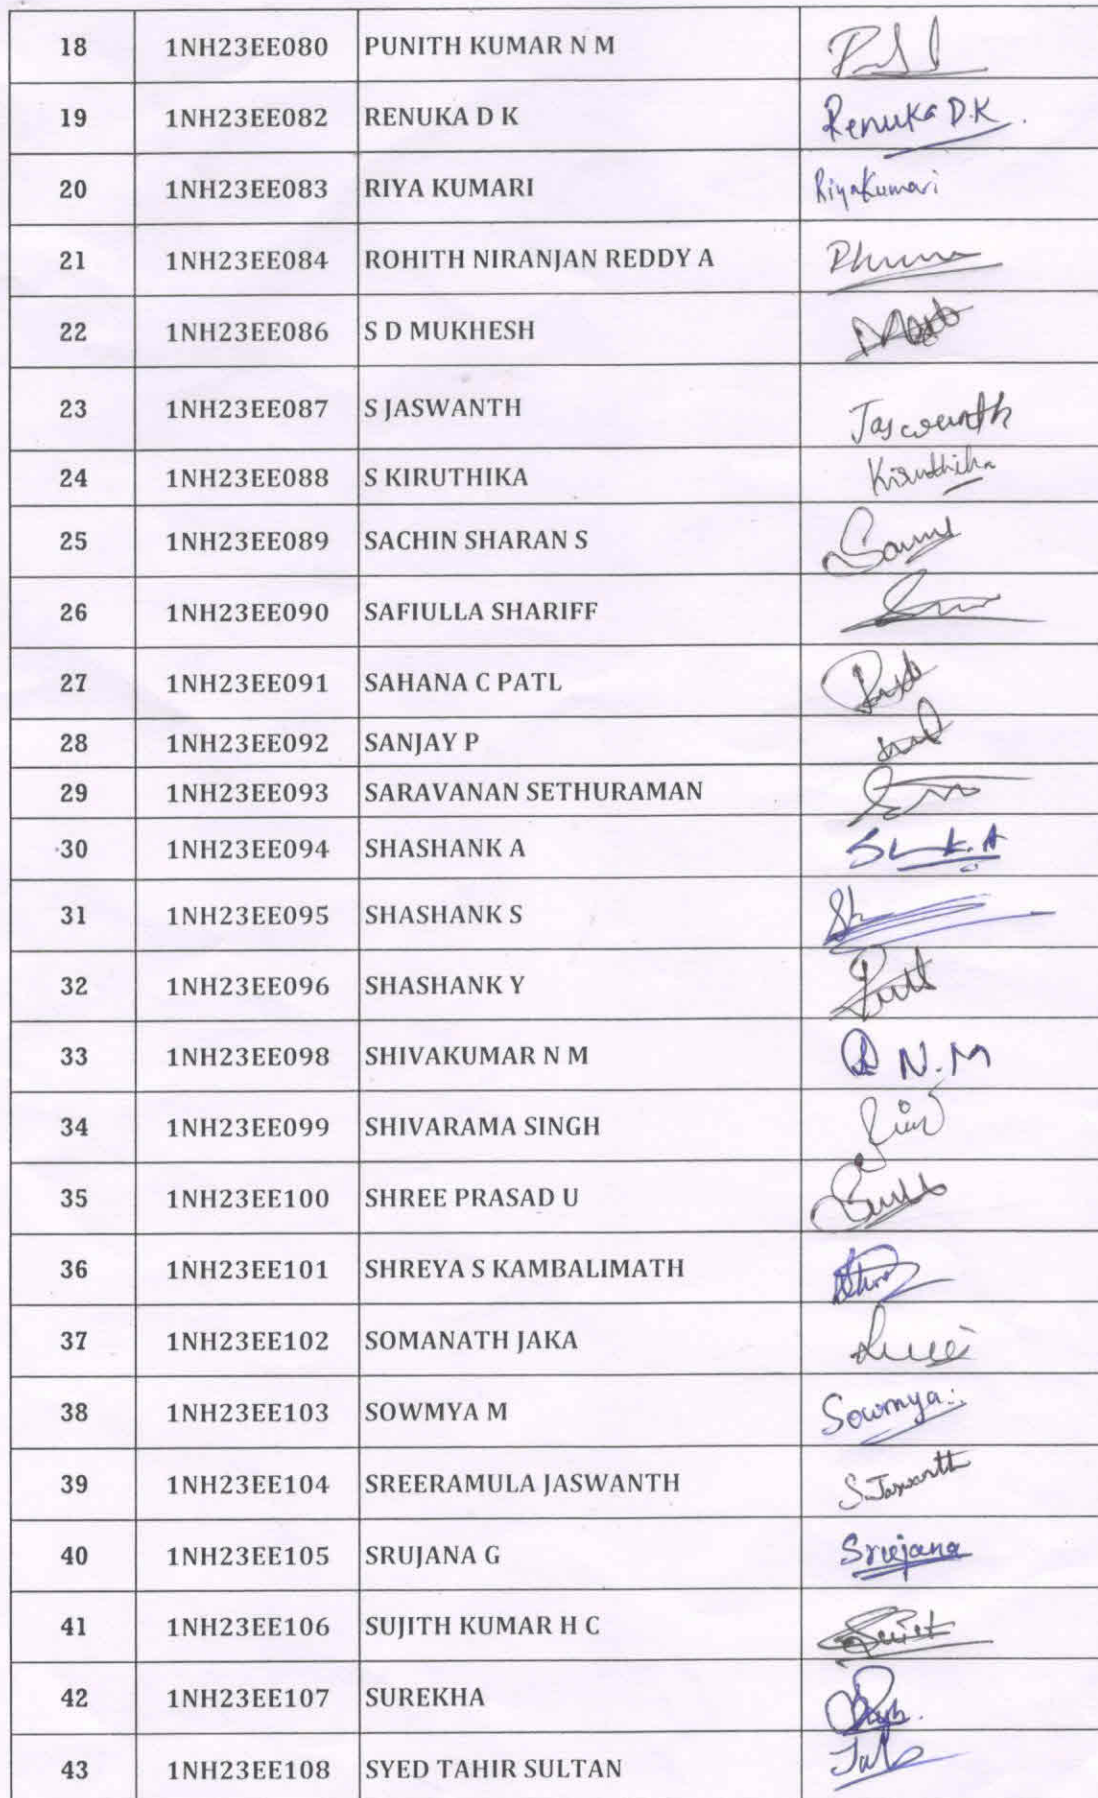 18 1NH23EE080 PUNITH KUMAR N M
19 1NH23EE082 RENUKA D K Renuka D.K.
20 1NH23EE083 RIYA KUMARI Riya Kumari
21 1NH23EE084 ROHITH NIRANJAN REDDY A
22 1NH23EE086 S D MUKHESH
23 1NH23EE087 S JASWANTH Jaswanth
24 1NH23EE088 S KIRUTHIKA Kiruthika
25 1NH23EE089 SACHIN SHARAN S
26 1NH23EE090 SAFIULLA SHARIFF
27 1NH23EE091 SAHANA C PATL
28 1NH23EE092 SANJAY P
29 1NH23EE093 SARAVANAN SETHURAMAN
30 1NH23EE094 SHASHANK A
31 1NH23EE095 SHASHANK S
32 1NH23EE096 SHASHANK Y
33 1NH23EE098 SHIVAKUMAR N M N.M
34 1NH23EE099 SHIVARAMA SINGH
35 1NH23EE100 SHREE PRASAD U
36 1NH23EE101 SHREYA S KAMBALIMATH
37 1NH23EE102 SOMANATH JAKA
38 1NH23EE103 SOWMYA M Sowmya
39 1NH23EE104 SREERAMULA JASWANTH S. Jaswanth
40 1NH23EE105 SRUJANA G Srujana
41 1NH23EE106 SUJITH KUMAR H C
42 1NH23EE107 SUREKHA
43 1NH23EE108 SYED TAHIR SULTAN